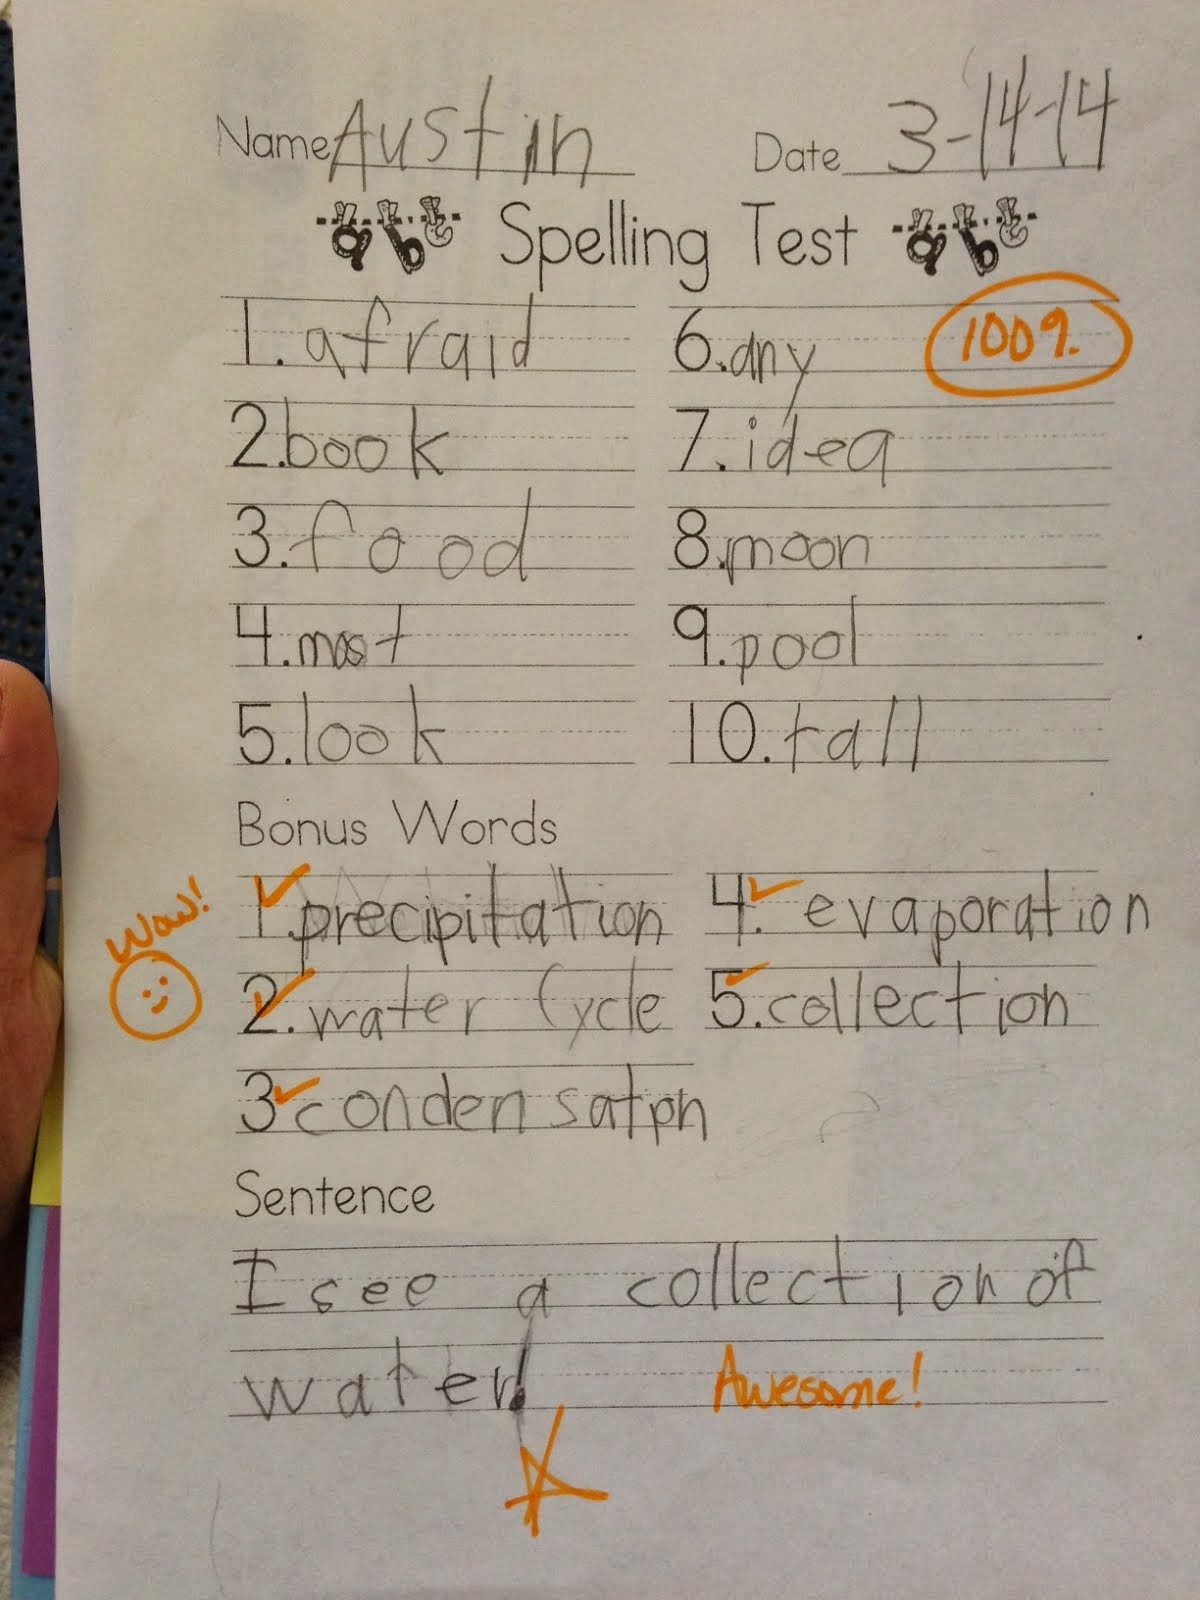 Name Austin Date 3-14-14
abc Spelling Test abc
1. afraid
2. book
3. food
4. most
5. look
6. any
100%
7. idea
8. moon
9. pool
10. tall
Bonus Words
Wow!
1. precipitation
2. water cycle
3 condensation
4. evaporation
5. collection
Sentence
I see a collection of
water!
Awesome!